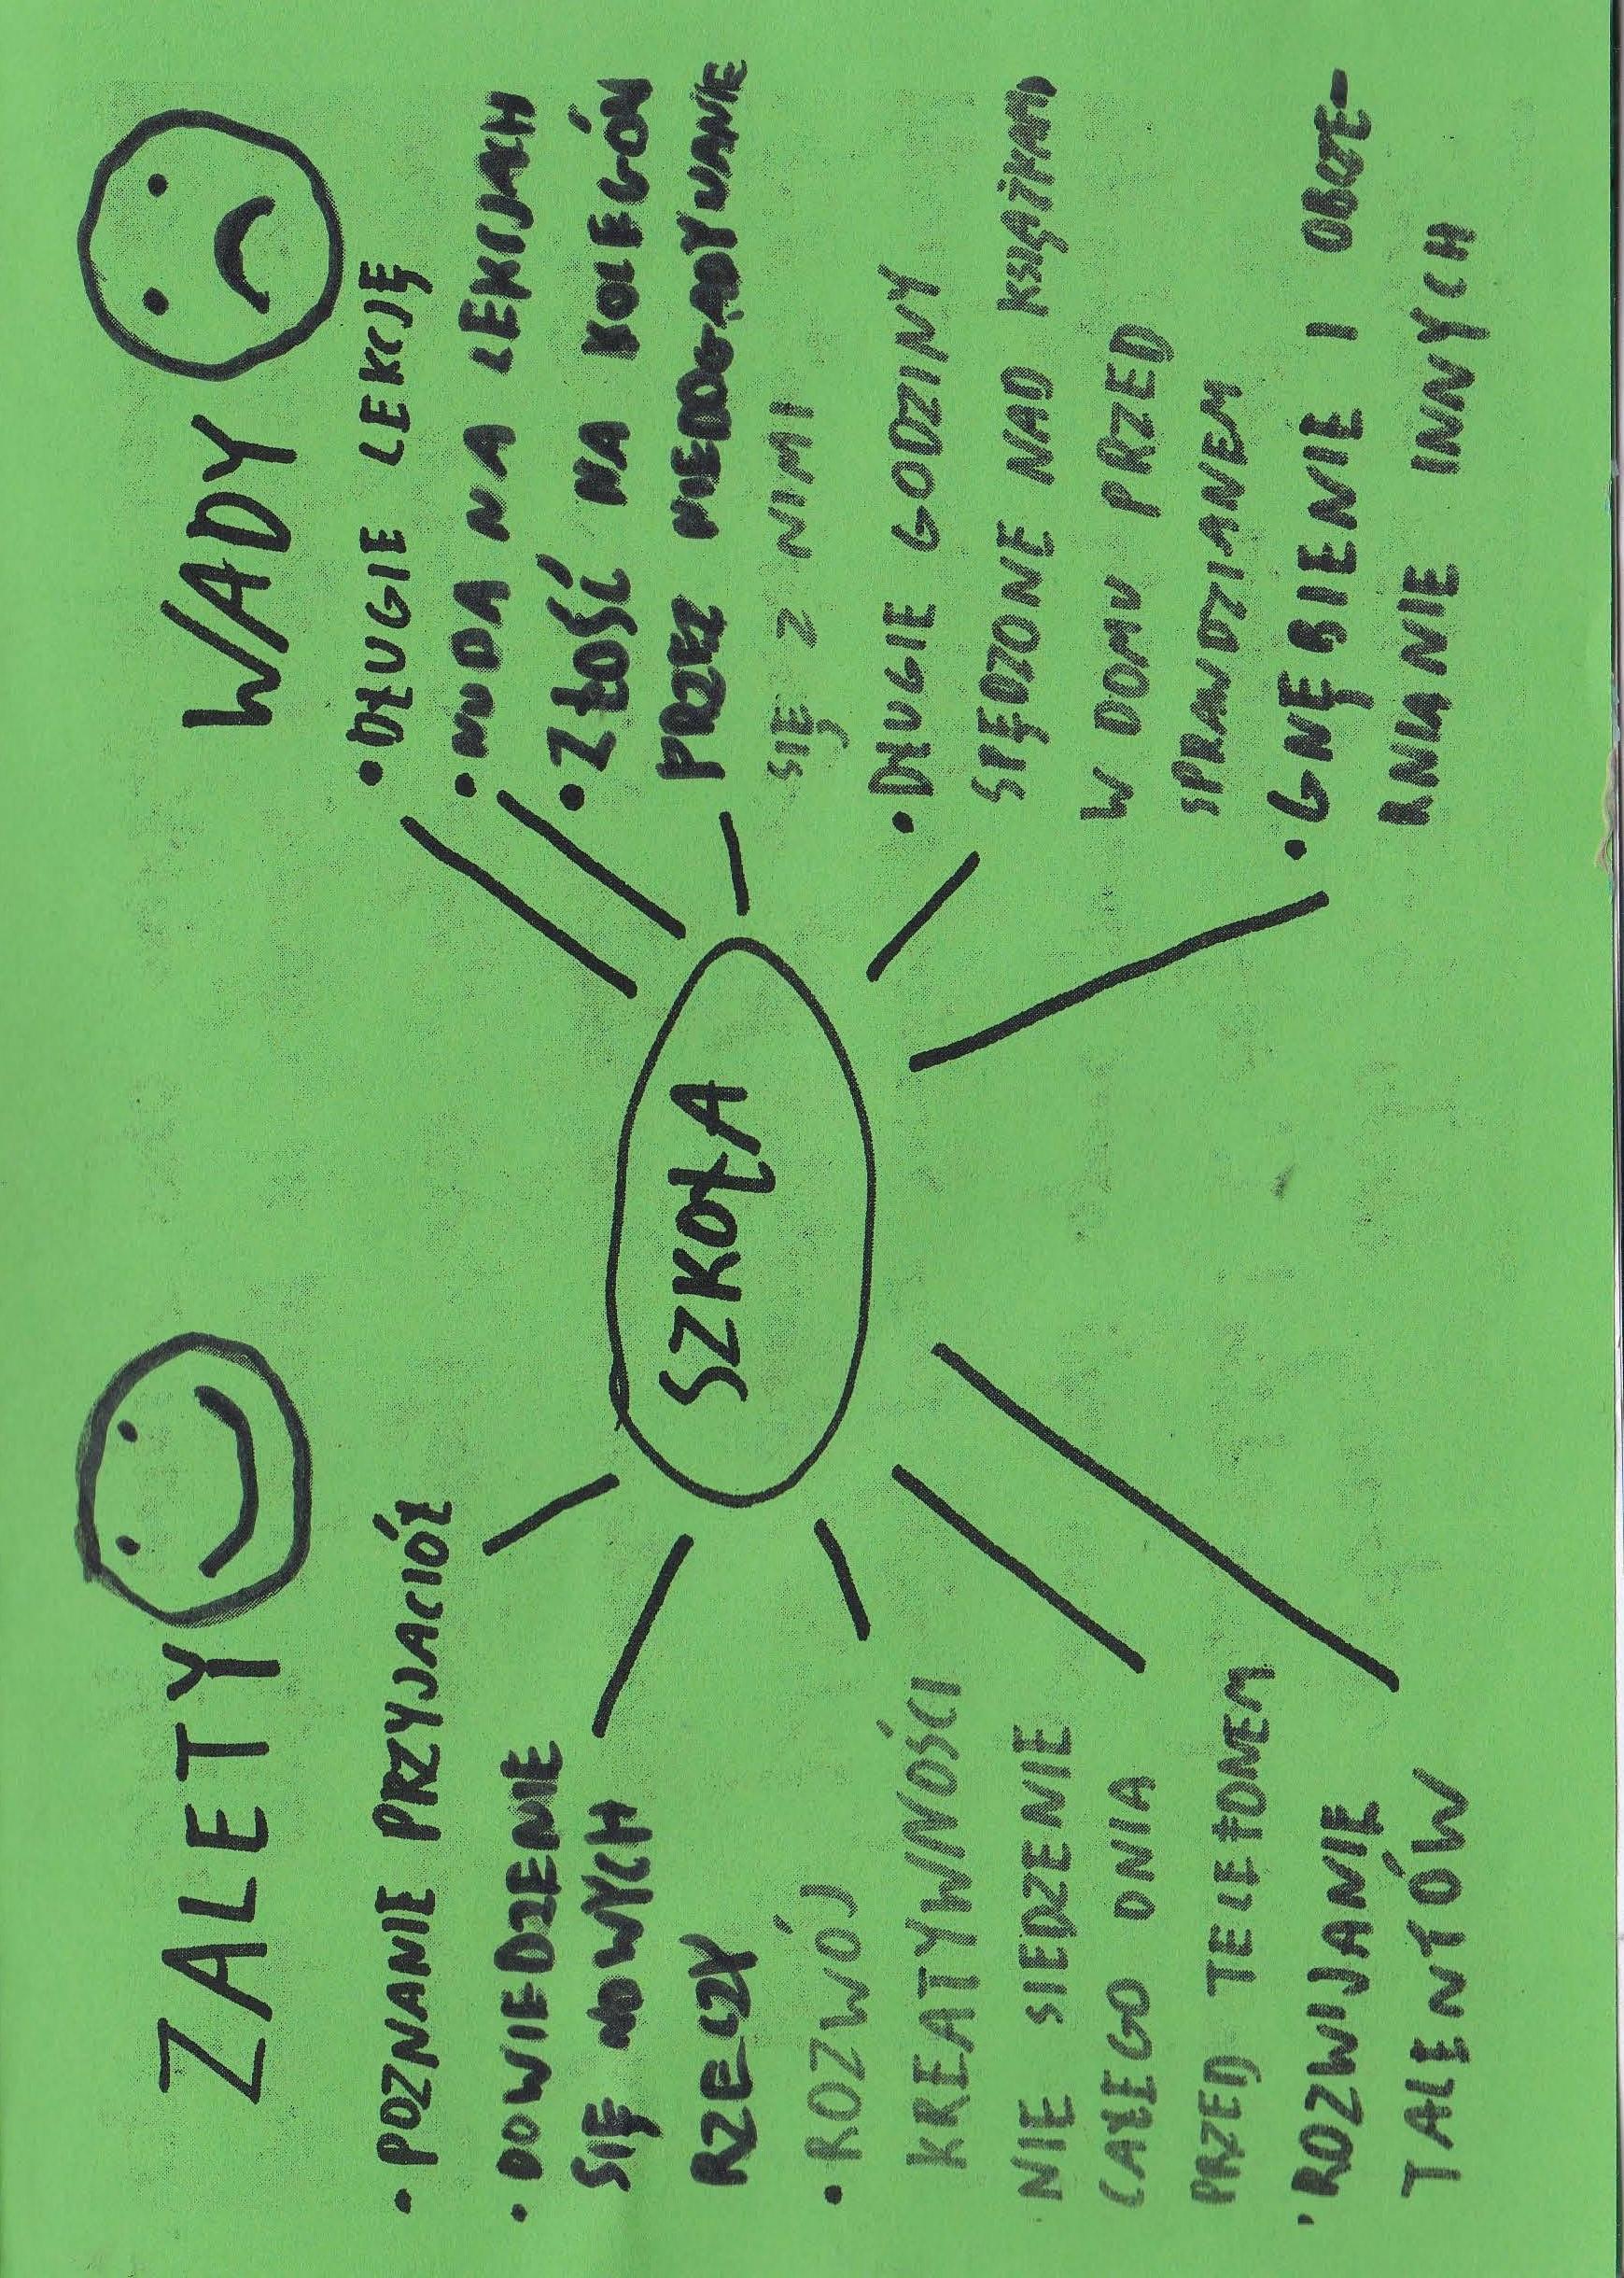 ZALETY
• POZNANIE PRZYJACIÓŁ
• DOWIEDZENIE
SIĘ NOWYCH
RZECZY
• ROZWÓJ
KREATYWNOŚCI
NIE SIEDZENIE
CAŁEGO DNIA
PRZED TELEFONEM
• ROZWIJANIE
TALENTÓW
SZKOŁA
WADY
• DŁUGIE LEKCJĘ
• NUDA NA LEKCJACH
• ZŁOŚĆ NA KOLEGÓW
PRZEZ NIEDOGADYWANIE
SIĘ Z NIMI
• DŁUGIE GODZINY
SPĘDZONE NAD KSIĄŻKAMI
W DOMU PRZED
SPRAWDZIANEM
• GNĘBIENIE I OBGE-
RNIANIE INNYCH